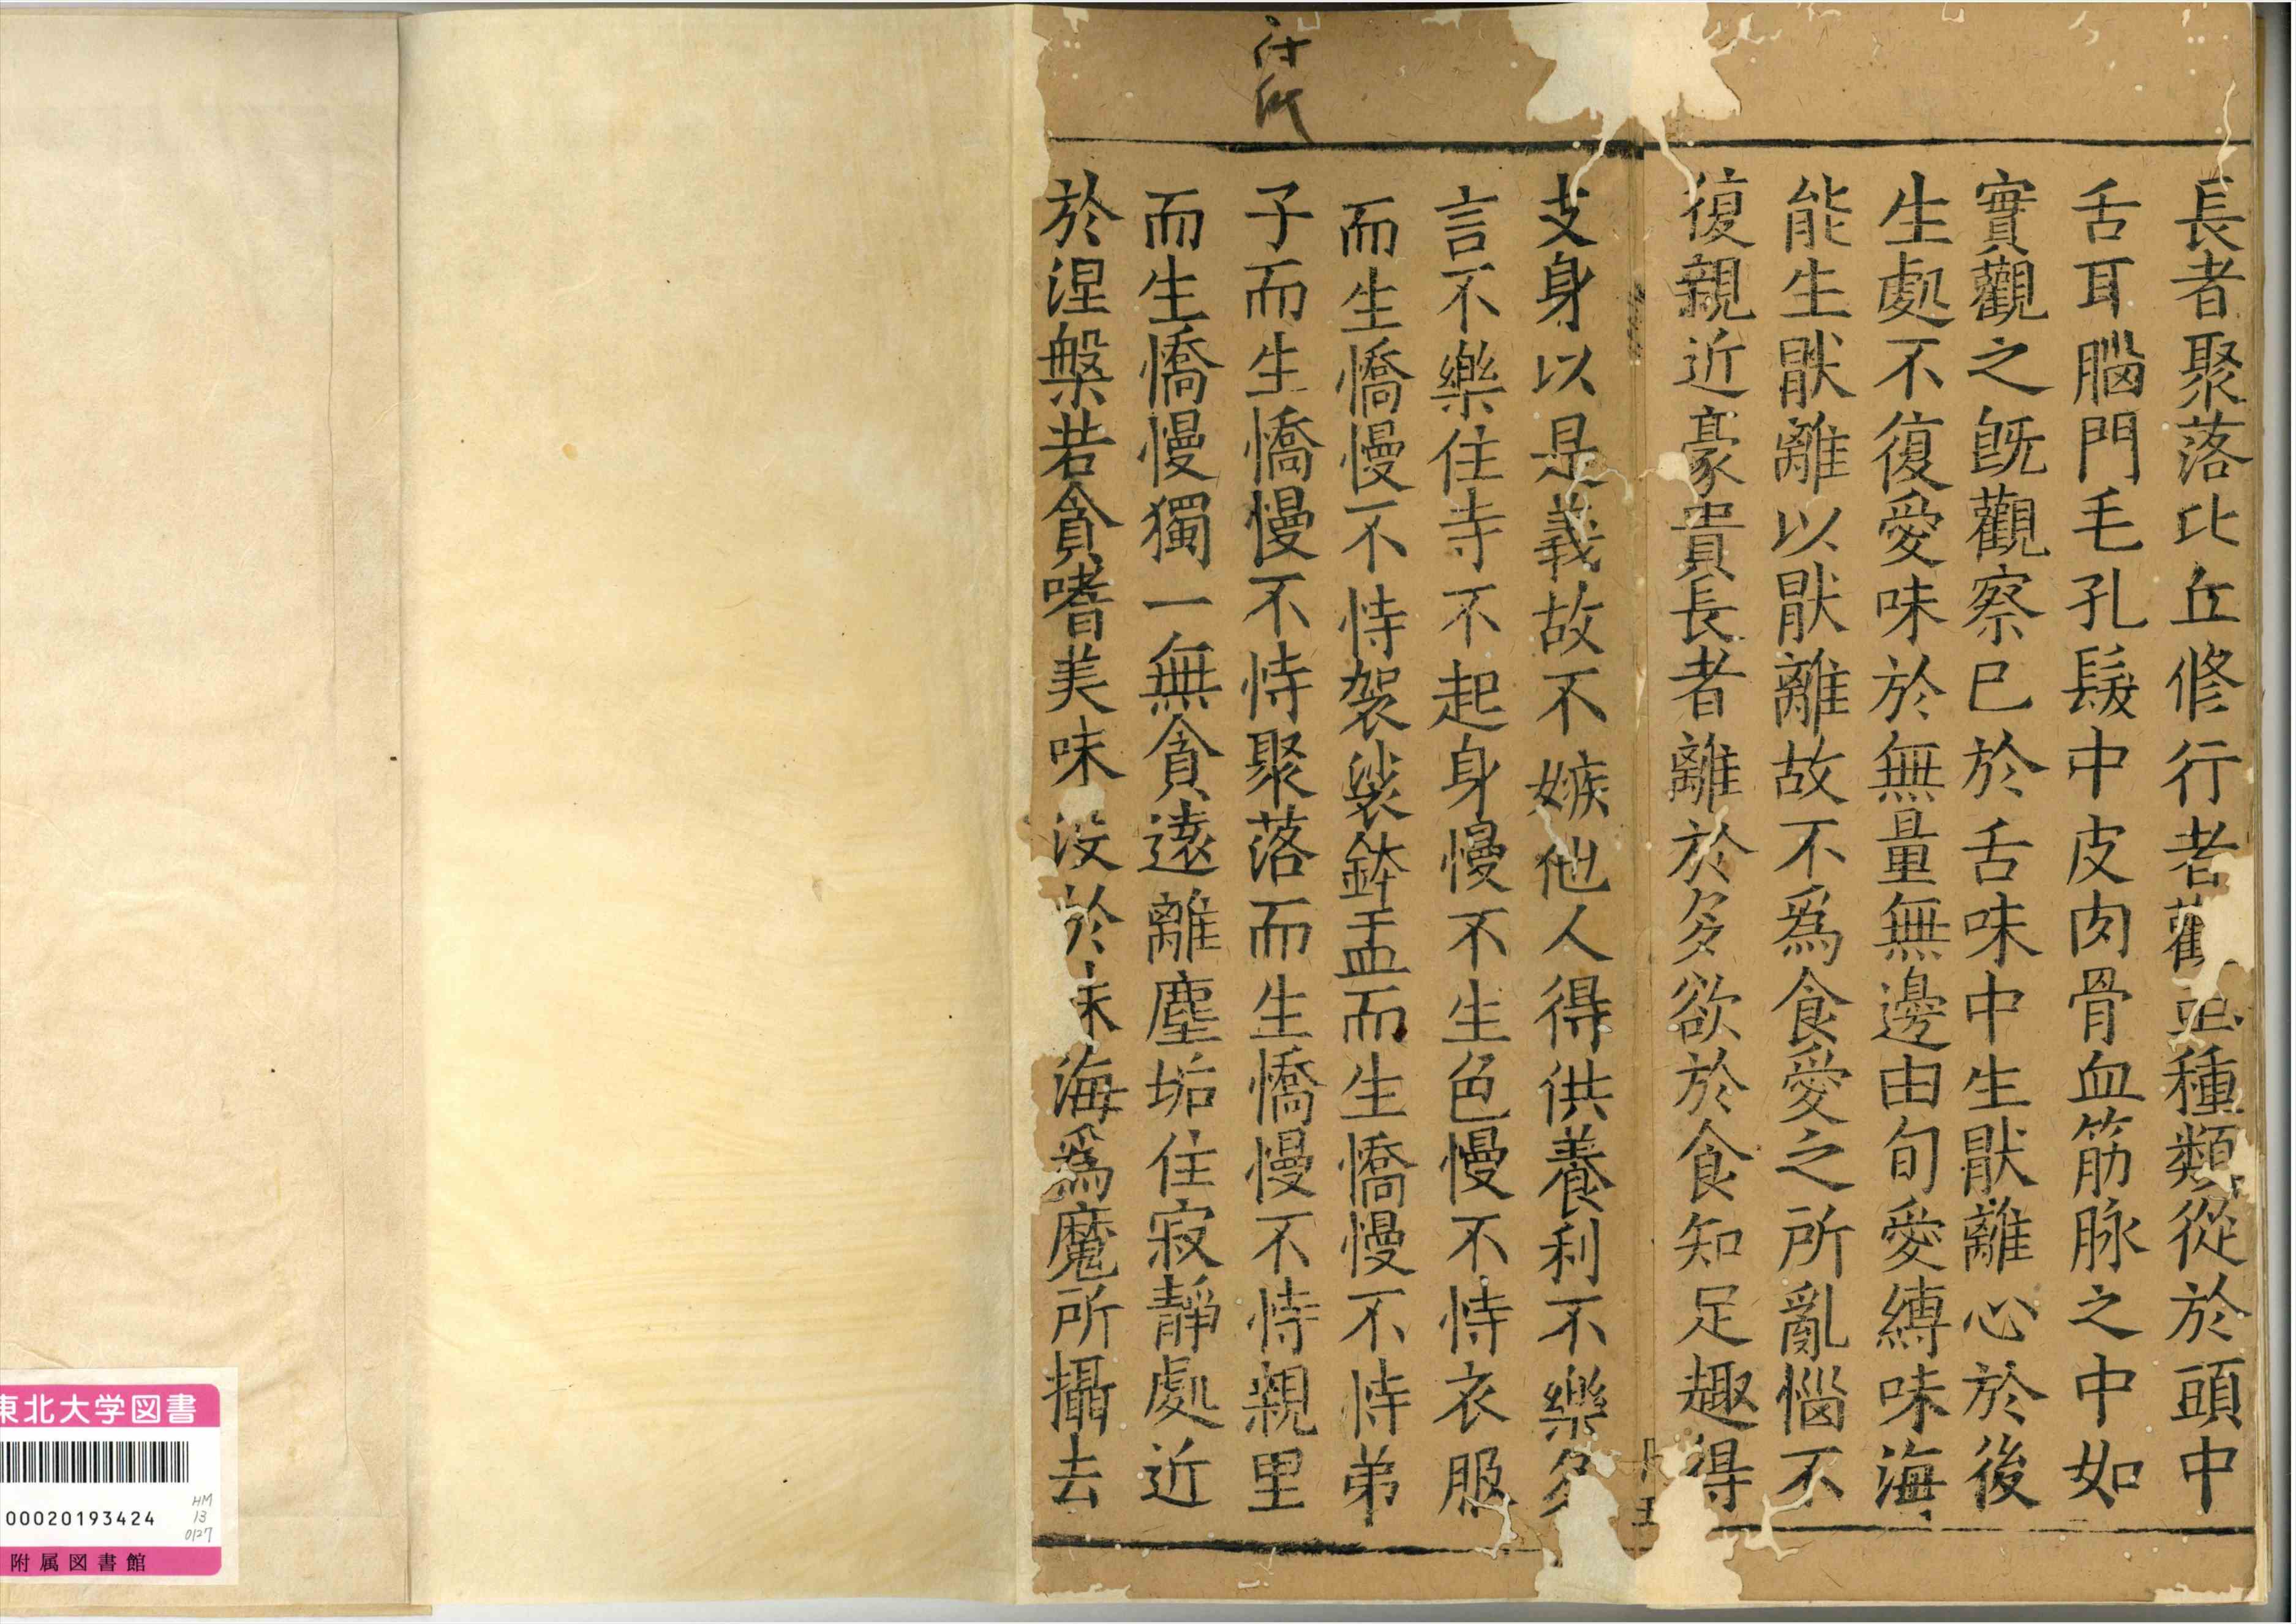 長者聚落比丘修行者觀蟲種類從於頭中
舌耳腦門毛孔髮中皮肉骨血筋脉之中如
實觀之旣觀察已於舌味中生猒離心於後
生處不復愛味於無量無邊由旬愛縛味海
能生猒離以猒離故不爲食愛之所亂惱不
復親近豪貴長者離於多欲於食知足趣得
支身以是義故不嫉他人得供養利不樂多
言不樂住寺不起身慢不生色慢不恃衣服
而生憍慢不恃袈裟鉢盂而生憍慢不恃弟
子而生憍慢不恃聚落而生憍慢不恃親里
而生憍慢獨一無貪遠離塵垢住寂靜處近
於涅槃若貪嗜美味没於味海爲魔所攝去
東北大学図書
00020193424
HM
13
0127
附属図書館